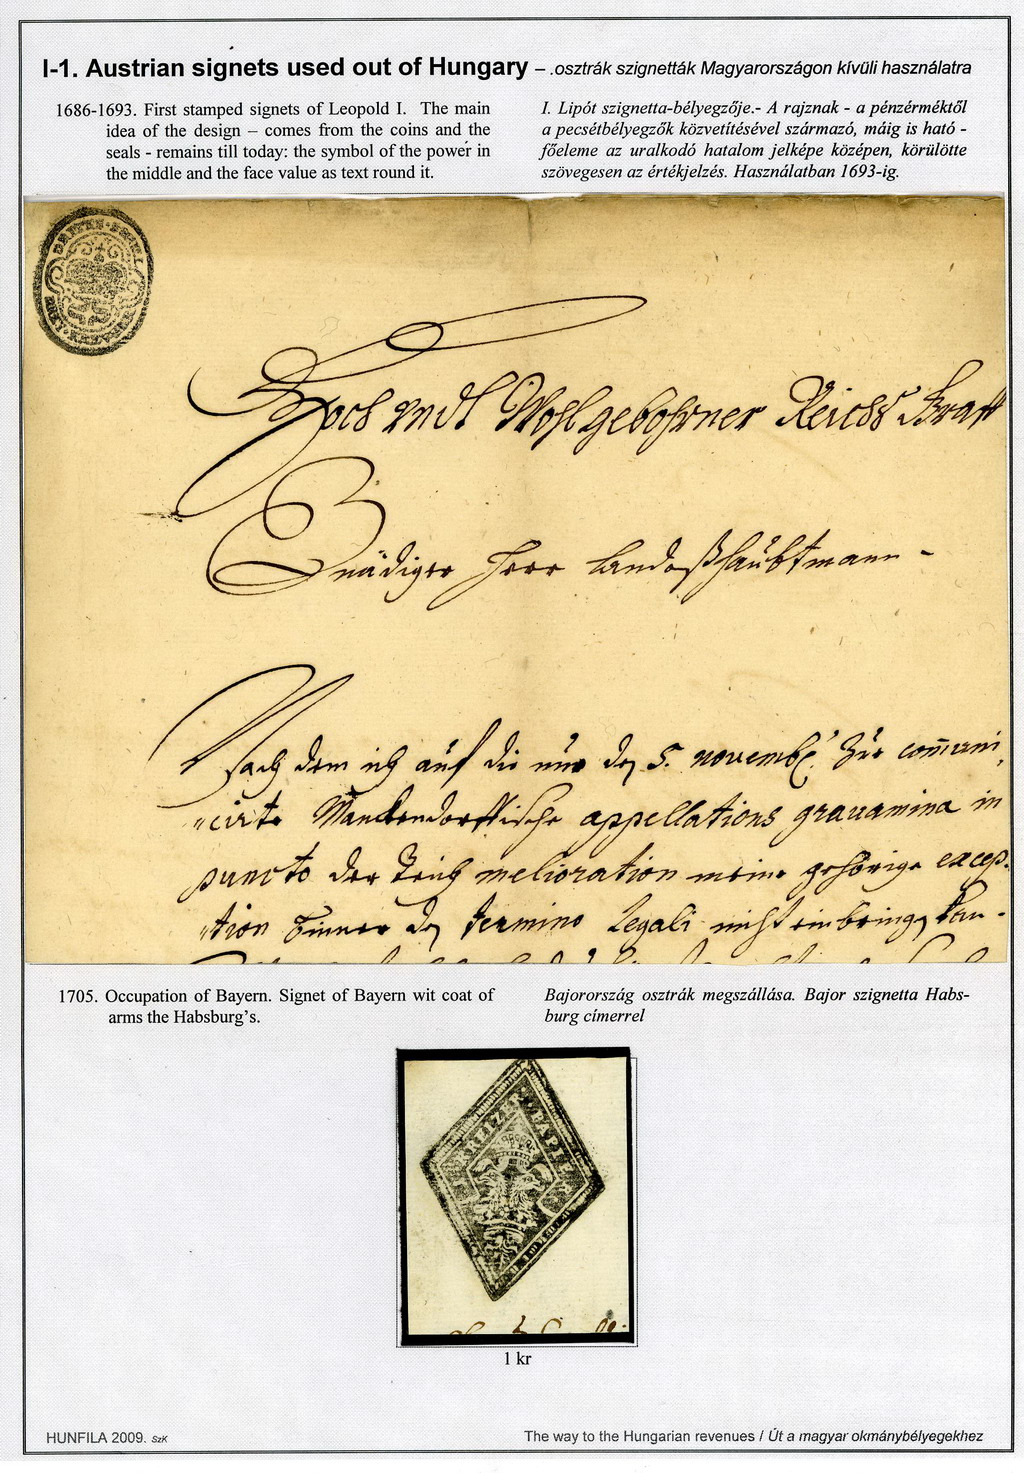 I-1. Austrian signets used out of Hungary – .osztrák szignetták Magyarországon kívüli használatra
1686-1693. First stamped signets of Leopold I. The main
idea of the design – comes from the coins and the
seals - remains till today: the symbol of the power in
the middle and the face value as text round it.
I. Lipót szignetta-bélyegzője.- A rajznak - a pénzérméktől
a pecsétbélyegzők közvetítésével származó, máig is ható -
főeleme az uralkodó hatalom jelképe középen, körülötte
szövegesen az értékjelzés. Használatban 1693-ig.
Hoch vndt Wohlgebohrner Reichs Graff
Gnädiger Herr Landeßhaubtmann -
Nach dem ich auf die mir den 5. novemb. zur com̄uni
cirte appellations gravamina in
puncto der Teich melioration meine gehörige excep-
tion binnen den termino legali nicht einbringen kan-
1705. Occupation of Bayern. Signet of Bayern wit coat of
arms the Habsburg's.
Bajorország osztrák megszállása. Bajor szignetta Habs-
burg címerrel
KREIZER PAPIR
1 kr
HUNFILA 2009. SzK
The way to the Hungarian revenues / Út a magyar okmánybélyegekhez